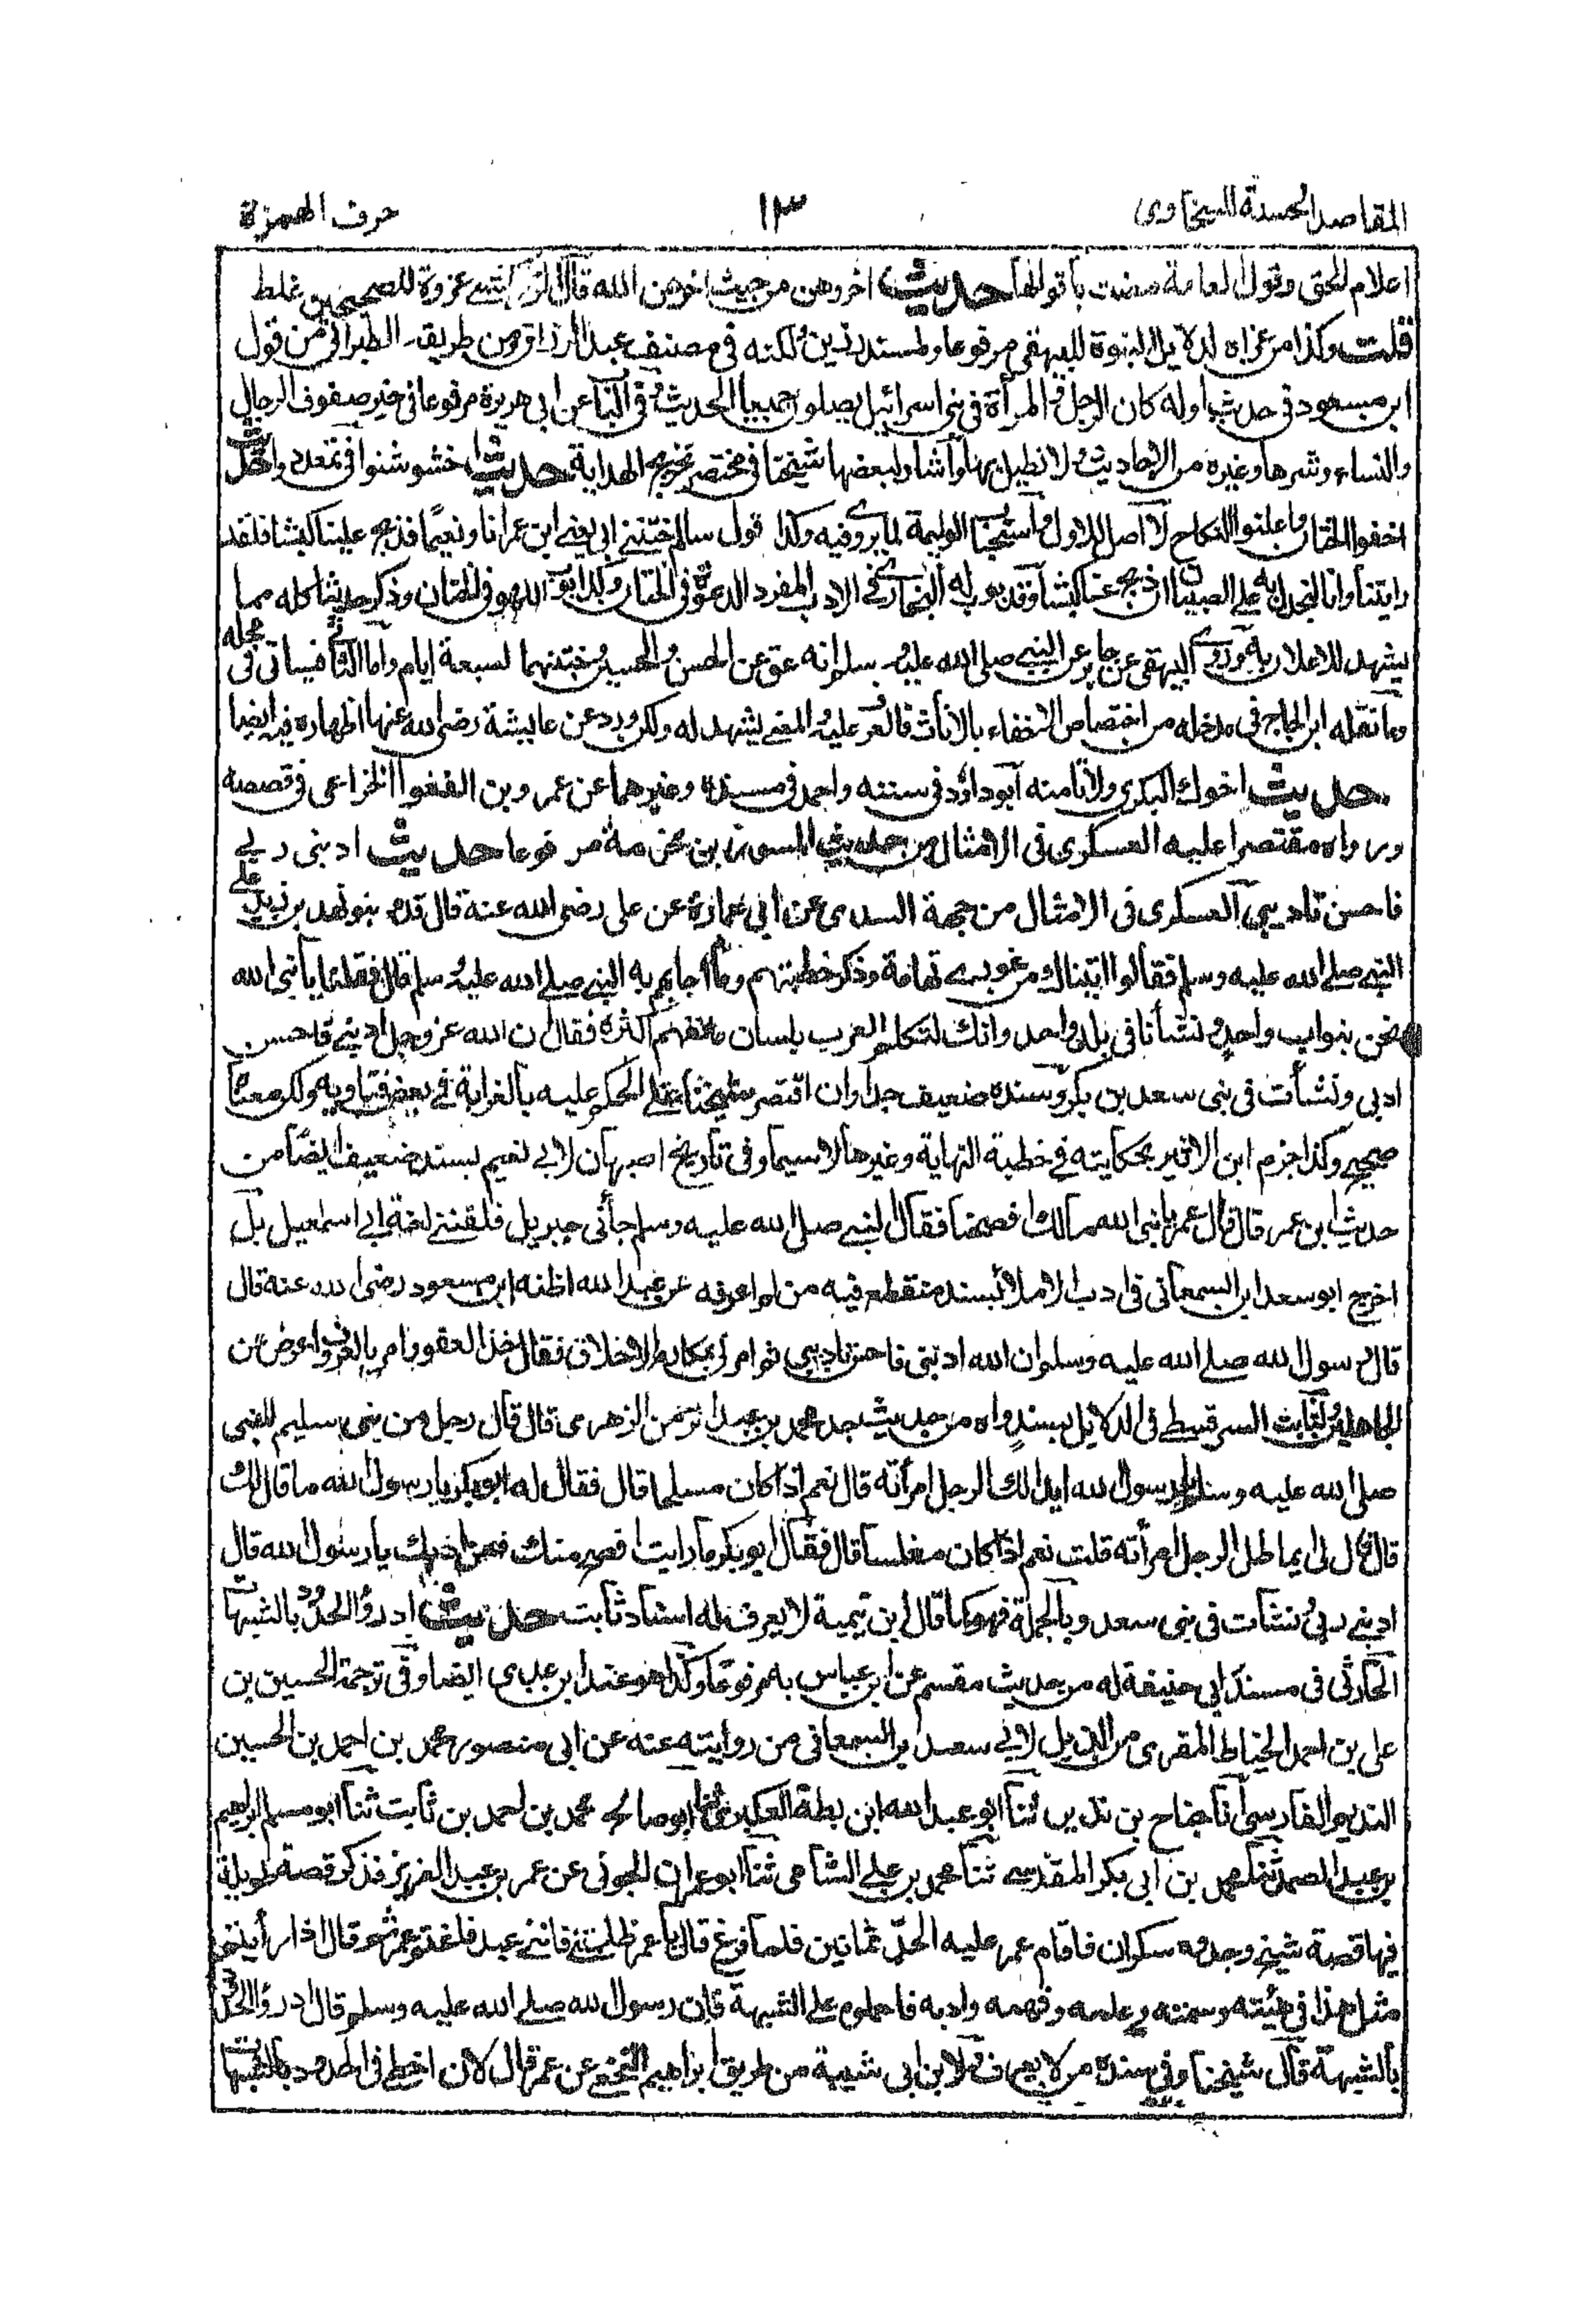 المقاصد الحسنة للسخاوى ١٣ حرف الهمزة
اعلام الحق وقول العامة مضت باقوالها حديث اخروهن من حيث اخرهن الله قال الزركشى عزوه للصحيحين غلط
قلت وكذا من عزاه لدلائل النبوة للبيهقى مرفوعا ولمسند رزين ولكنه فى مصنف عبد الرزاق ومن طريقه الطبرانى من قول
ابن مسعود فى حديث اوله كان الرجل والمرأة فى بنى اسرائيل يصلون جميعا الحديث وفى الباب عن ابى هريرة مرفوعا فى خير صفوف الرجال
والنساء وشرها وغيره من الاحاديث لا نطيل بها واشار لبعضها شيخنا فى مختصر تخريج الهداية حديث اخشوشنوا فى تمعددوا حديث
اخفوا الختان واعلنوا النكاح لا اصل للاول واستحباب الوليمة لما يروى فيه وكذا قول سالم ختننى ابى يعنى ابن عمر انا ونعيما فذبح علينا كبشا فلقد
رايتنا وانا لنجذل به على الصبيان ان ذبح عنا كبشا وقد بوب له البخارى فى الادب المفرد الدعوة فى الختان وكذا بوب اللهو فى الختان وذكر حديثا كله مما
يشهد للاعلان به وروى البيهقى عن جابر عن النبى صلى الله عليه وسلم انه عق عن الحسن والحسين وختنهما لسبعة ايام واما الثانى فسياتى فى محله
وما نقله ابن الحاج فى مدخله من اختصاص الاخفاء بالاناث فالعرف عليه والمعنى يشهد له ولكن ورد عن عايشة رضى الله عنها اظهاره فيه ايضا
حديث اخوك البكرى ولا تامنه ابو داؤد فى سننه واحمد فى مسنده وغيرهما عن عمرو بن الفغوا الخزاعى فى قصة
ورواه مقتصرا عليه العسكرى فى الامثال من حديث المسور بن مخرمة مرفوعا حديث ادبنى ربى
فاحسن تاديبى العسكرى فى الامثال من جهة السدى عن ابى عمارة عن على رضى الله عنه قال قدم بنو نهد بن زيد على
النبى صلى الله عليه وسلم فقالوا اتيناك من غورى تهامة وذكر خطبتهم وما اجابهم به النبى صلى الله عليه وسلم قال فقلنا يا نبى الله
نحن بنو اب واحد ونشأنا فى بلد واحد وانك لتكلم العرب بلسان ما نفهم اكثره فقال ان الله عز وجل ادبنى فاحسن
ادبى ونشأت فى بنى سعد بن بكر وسنده ضعيف جدا وان اقتصر شيخنا على الحكم عليه بالغرابة فى بعض فتاويه ولكن معناه
صحيح وكذا جزم ابن الاثير بحكايته فى خطبة النهاية وغيرها لاسيما وفى تاريخ اصبهان لابى نعيم بسند ضعيف ايضا من
حديث ابن عمر قال قال عمر يا نبى الله مالك افصحنا فقال النبى صلى الله عليه وسلم جأنى جبريل فلقننى لغة ابى اسمعيل بل
اخرج ابو سعد ابن السمعانى فى ادب الاملا بسند منقطع فيه من لم اعرفه عن عبد الله اظنه ابن مسعود رضى الله عنه قال
قال رسول الله صلى الله عليه وسلم ان الله ادبنى فاحسن تاديبى ثم امرنى بمكارم الاخلاق فقال خذ العفو وامر بالعرف واعرض عن
الجاهلين ولثابت السرقسطى فى الدلائل بسند واه من حديث جد محمد بن عبد الرحمن الزهرى قال قال رجل من بنى سليم للنبى
صلى الله عليه وسلم يا رسول الله ايدالك الرجل امرأته قال نعم اذا كان مفلسا قال فقال له ابو بكر يا رسول الله ما قال لك
قال قال لى ايماطل الرجل امرأته قلت نعم اذا كان مفلسا قال فقال ابو بكر ما رايت افصح منك فمن ادبك يا رسول الله قال
ادبنى ربى ونشأت فى بنى سعد وبالجملة فهو كما قال ابن تيمية لا يعرف له اسناد ثابت حديث ادرؤا الحدود بالشبهات
الحارثى فى مسند ابى حنيفة له من حديث مقسم عن ابن عباس به مرفوعا وكذا هو عند ابن عدى ايضا وفى ترجمة الحسين بن
على بن احمد الخياط المقرى من الذيل لابى سعد بن السمعانى من روايته عنه عن ابى منصور محمد بن احمد بن الحسين
النديم الفارسى انا جناح بن نذير ثنا ابو عبد الله ابن بطة العكبرى ثنا ابو صالح محمد بن احمد بن ثابت ثنا ابو مسلم ابراهيم
بن عبد الصمد ثنا محمد بن ابى بكر المقدسى ثنا محمد بن على الشامى ثنا ابو عمران الجونى عن عمر بن عبد العزيز فذكر قصة طويلة
فيها قصة شيخ وجدوه سكران فاقام عمر عليه الحد ثمانين فلما فرغ قال يا عمر ظلمتنى فاننى عبد فاغتم عمر ثم قال اذا رأيتم
مثل هذا فى هيئته وسمته وعلمه وفهمه وادبه فاحملوه على الشبهة فان رسول الله صلى الله عليه وسلم قال ادرؤا الحدود
بالشبهة قال شيخنا وفى سنده من لا يعرف ولابن ابى شيبة من طريق ابراهيم النخعى عن عمر قال لان اخطئ فى الحدود بالشبهات